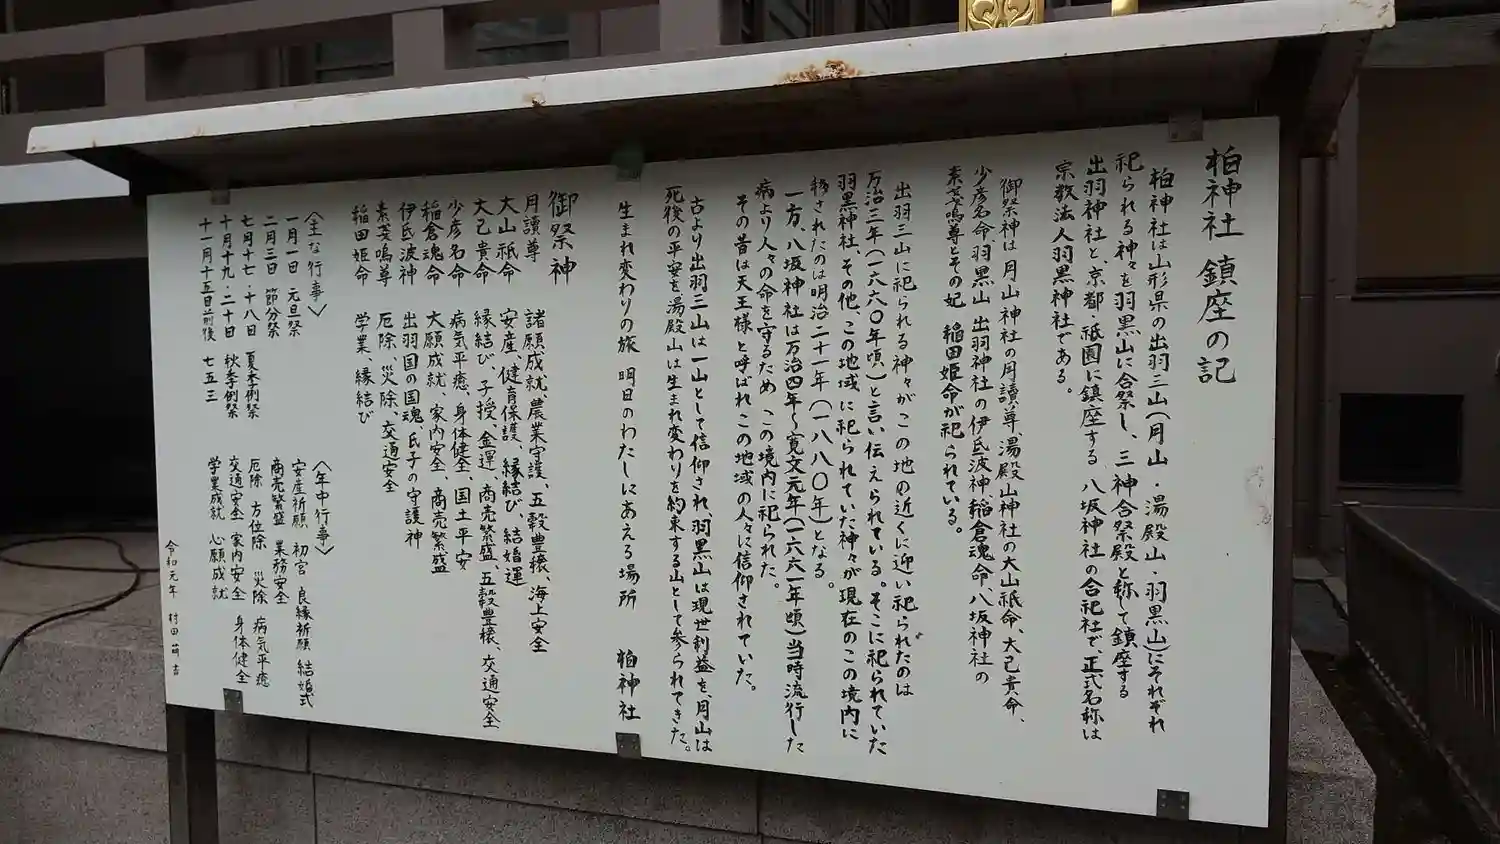 柏神社 鎮座の記
柏神社は山形県の出羽三山(月山・湯殿山・羽黒山)にそれぞれ
祀られる神々を羽黒山に合祭し、三神合祭殿と称して鎮座する
出羽神社と京都祇園に鎮座する八坂神社の合祀社で、正式名称は
宗教法人羽黒神社である。
御祭神は月山神社の月讀尊、湯殿山神社の大山祇命、大己貴命、
少彦名命羽黒山 出羽神社の伊氐波神、稲倉魂命、八坂神社の
素戔嗚尊とその妃 稲田姫命が祀られている。
出羽三山に祀られる神々がこの地の近くに迎い祀られたのは
万治三年(一六六〇年頃)と言い伝えられている。そこに祀られていた
羽黒神社、その他、この地域に祀られていた神々が現在のこの境内に
移されたのは明治二十一年(一八八〇年)となる。
一方、八坂神社は万治四年〜寛文元年(一六六一年頃)当時流行した
病より人々の命を守るため この境内に祀られた。
その昔は天王様と呼ばれこの地域の人々に信仰されていた。
古より出羽三山は一山として信仰され、羽黒山は現世利益を、月山は
死後の平安を湯殿山は生まれ変わりを約束する山として参られてきた。
生まれ変わりの旅 明日のわたしにあえる場所 柏神社
御祭神
月讀尊 諸願成就、農業守護、五穀豊穣、海上安全
大山祇命 安産、健育保護、縁結び、結婚運
大己貴命 縁結び、子授、金運、商売繁盛、五穀豊穣、交通安全
少彦名命 病気平癒、身体健全、国土平安
稲倉魂命 大願成就、家内安全、商売繁盛
伊氐波神 出羽国の国魂、氏子の守護神
素戔嗚尊 厄除、災除、交通安全
稲田姫命 学業、縁結び
〈主な行事〉
一月一日 元旦祭
二月三日 節分祭
七月十七・十八日 夏季例祭
十月十九・二十日 秋季例祭
十一月十五日前後 七五三
〈年中行事〉
安産祈願 初宮 良縁祈願 結婚式
商売繁盛 業務安全
厄除 方位除 災除 病気平癒
交通安全 家内安全 身体健全
学業成就 心願成就
令和元年 村田 吉